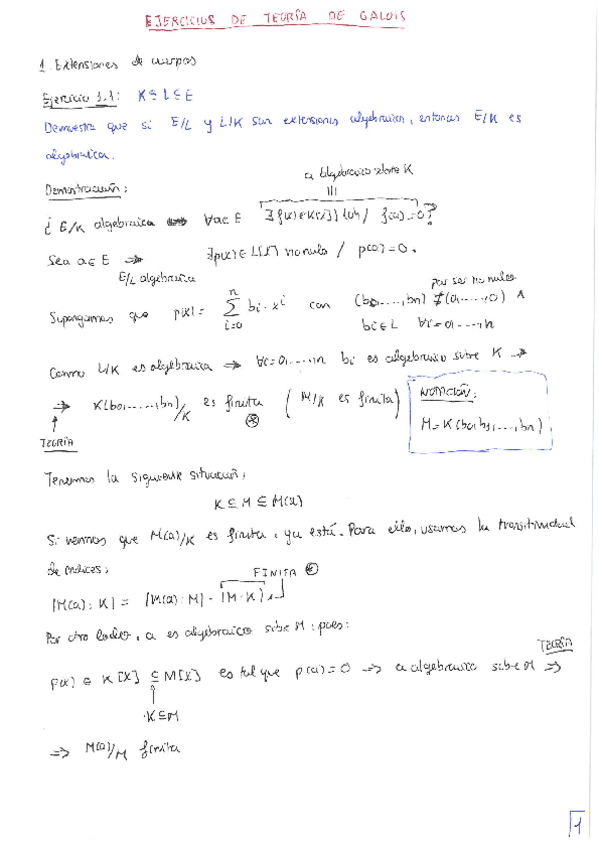 EJERCICIOS DE TEORÍA DE GALOIS
1. Extensiones de cuerpos
Ejercicio 1.1: K ⊆ L ⊆ E
Demuestra que si E/L y L/K son extensiones algebraicas, entonces E/K es
algebraica.
Demostración:
a algebraico sobre K
¿ E/K algebraica ⟺ ∀a∈E ∃f(x)∈K[x]\{0} / f(a)=0?
Sea a∈E ⟹ ∃p(x)∈L[X] no nulo / p(a)=0.
E/L algebraica
por ser no nulo
Supongamos que p(x) = ∑_{i=0}^{n} bi·x^i con (b0,...,bn) ≠ (0,...,0) ∧
bi∈L ∀i=0,...,n
Como L/K es algebraica → ∀i=0,...,n bi es algebraico sobre K →
→ K(b0,...,bn)/K es finita (M/K es finita)
⊛
NOTACIÓN:
M=K(b0,b1,...,bn)
TEORÍA
Tenemos la siguiente situación:
K ⊆ M ⊆ M(a)
Si vemos que M(a)/K es finita, ya está. Para ello, usamos la transitividad
de índices:
FINITA ⊛
|M(a):K| = |M(a):M|·|M:K|
Por otro lado, a es algebraico sobre M, pues:
TEORÍA
p(x) ∈ K[X] ⊆ M[X] es tal que p(a)=0 ⟹ a algebraico sobre M ⟹
K⊆M
⟹ M(a)/M finita
1